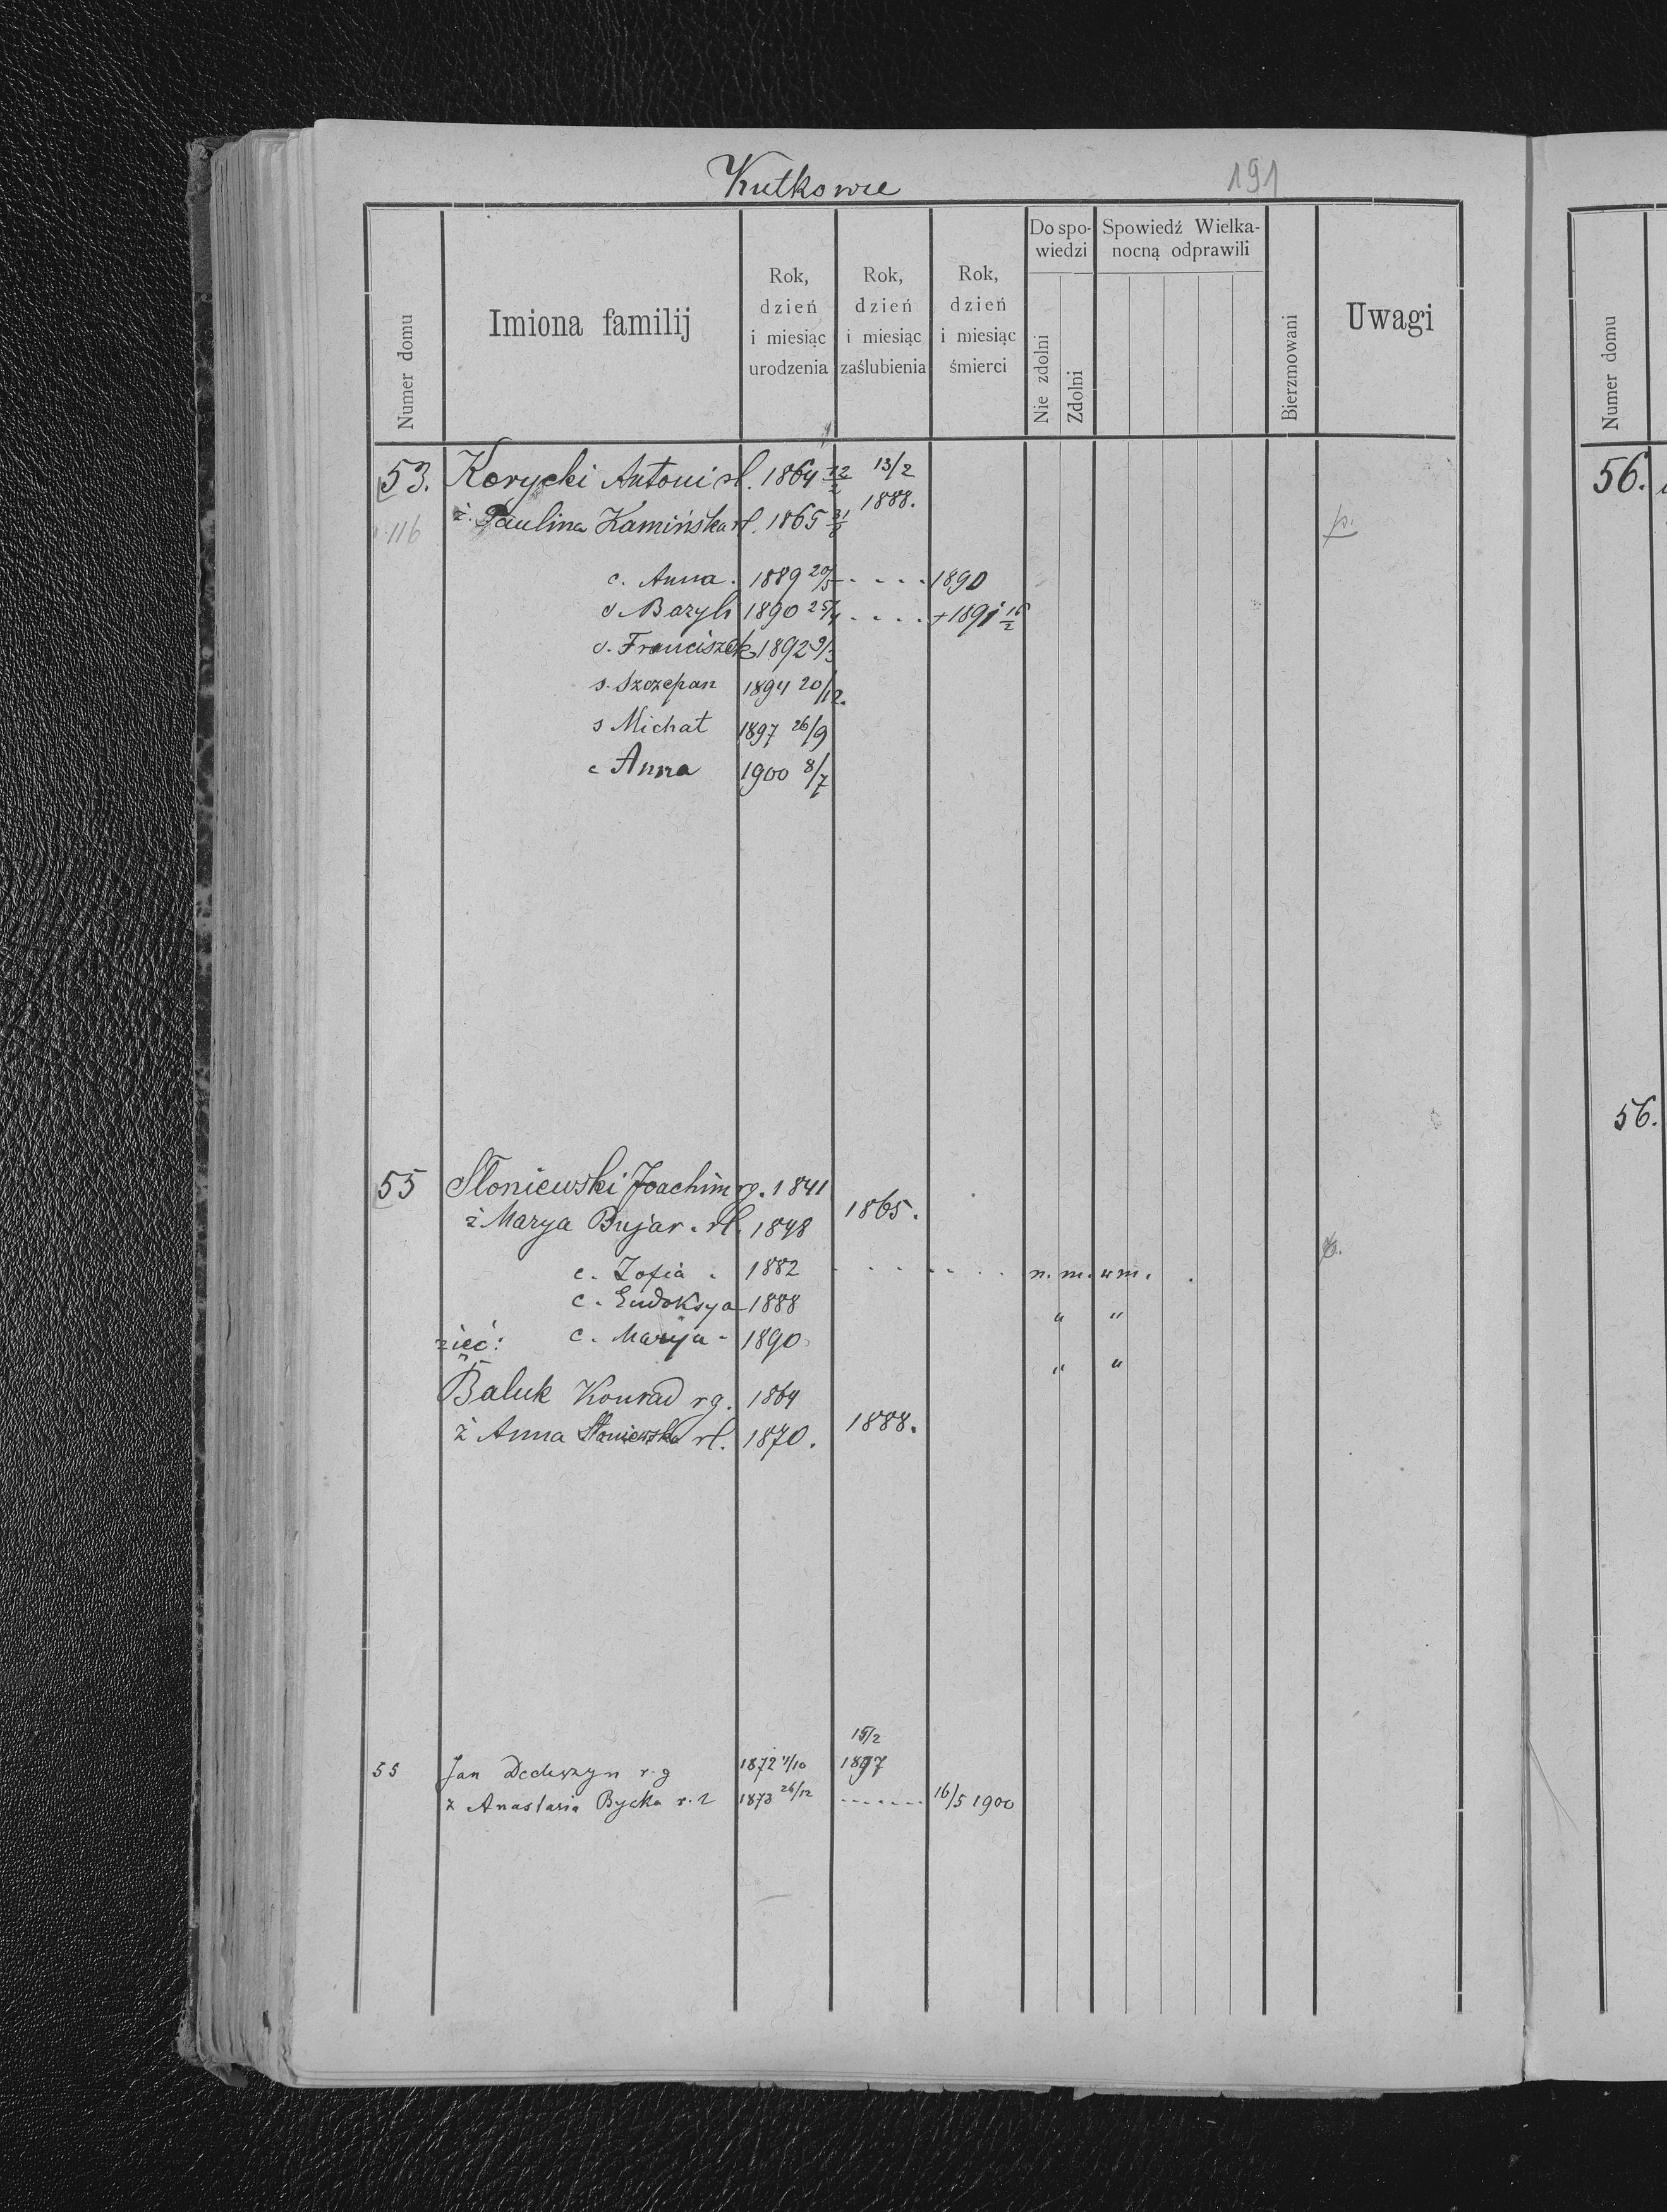 Kutkowce
191
Numer domu
Imiona familij
Rok, dzień i miesiąc urodzenia
Rok, dzień i miesiąc zaślubienia
Rok, dzień i miesiąc śmierci
Do spowiedzi
Nie zdolni
Zdolni
Spowiedź Wielkanocną odprawili
Bierzmowani
Uwagi
Numer domu
53. Korycki Antoni rl. 1864 12/2 13/2
1888.
116 ż. Paulina Kamińska rl. 1865 p.
c. Anna. 1889 - - - - 1890
s Bazyli 1890 25/4 . . . . +1891 16/2
s. Franciszek 1892 9/3
s. Szczepan 1894 20/12.
s Michał 1897 26/9
c Anna 1900 8/7
55 Słoniewski Joachim rg. 1841
1865.
ż Marya Bujar. rl. 1848
c. Zofia . 1882 . . . . . . n. m. um. .
c. Eudoksya 1888 " "
zięć: c. Marya - 1890 " "
Baluk Konrad rg. 1864
1888.
ż Anna Słoniewska rl. 1870.
15/2
55 Jan r. g 1872 1/10 1897
ż Anastazia Bycka r. l 1873 26/12 ....... 16/5 1900
56.
56.